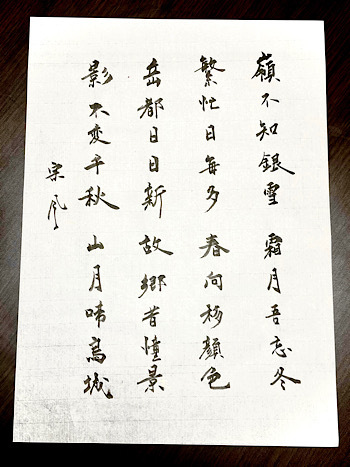 嶺不知銀雪 霜月吾忘冬
繁忙日每多 春向移顏色
岳都日日新 故鄉昔憧景
影不変千秋 山月啼高城
宗風